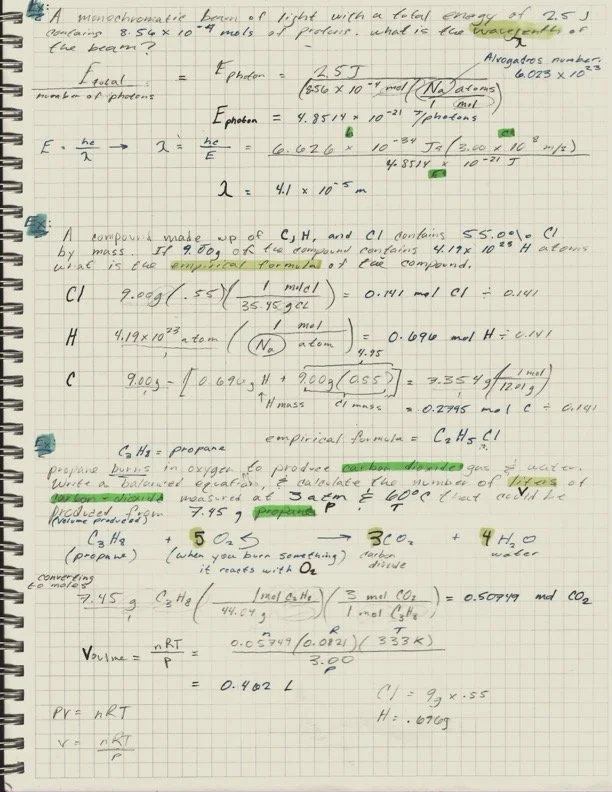 Ex:
A monochromatic beam of light with a total energy of 2.5 J
contains 8.56 x 10⁻⁴ mols of protons. what is the wavelength of
the beam?
λ
Alvogadros number:
6.023 x 10²³
E total / number of photons = E photon = 2.5 J / (8.56 x 10⁻⁴ mol (Na atoms / 1 mol))
E photon = 4.8514 x 10⁻²¹ J/photons
E = hc/λ → λ = hc/E = 6.626 x 10⁻³⁴ Js (3.00 x 10⁸ m/s) / 4.8514 x 10⁻²¹ J
λ = 4.1 x 10⁻⁵ m
Ex:
A compound made up of C, H, and Cl contains 55.0% Cl
by mass. If 9.00g of the compound contains 4.19 x 10²³ H atoms
what is the empirical formula of the compound.
Cl 9.00g (.55) (1 mol Cl / 35.45 g CL) = 0.141 mol Cl ÷ 0.141
H 4.19 x 10²³ atom (1 mol / Na atom) = 0.696 mol H ÷ 0.141
4.95
C 9.00g - [0.696g H + 9.00g (0.55)] = 3.354 g (1 mol / 12.01 g)
↑ H mass Cl mass = 0.2795 mol C ÷ 0.141
empirical formula = C₂H₅Cl
Ex
C₃H₈ = propane
propane burns in oxygen to produce carbon dioxide gas & water.
Write a balanced equation, & calculate the number of liters of
carbon-dioxide measured at 3 atm & 60°C that could be
P T V
produced from 7.45 g propane
(volume produced)
C₃H₈ + 5 O₂ → 3 CO₂ + 4 H₂O
(propane) (when you burn something) carbon water
it reacts with O₂ dioxide
converting
to moles
7.45 g C₃H₈ (1 mol C₃H₈ / 44.09 g) (3 mol CO₂ / 1 mol C₃H₈) = 0.50749 mol CO₂
n R T
Volume = nRT/P = 0.05749 (0.0821) (333K) / 3.00
P
= 0.462 L
Cl = 9g x .55
H = .696g
PV = nRT
V = nRT/P